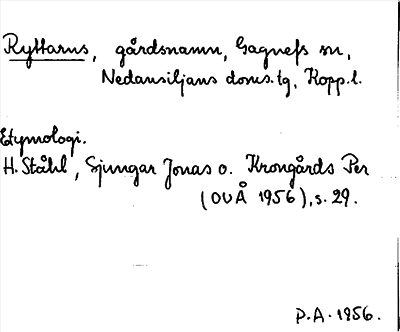 Ryttarns, gårdsnamn, Gagnefs sn,
Nedansiljans doms.tg, Kopp.l.
Etymologi.
H. Ståhl, Sjungar Jonas o. Krongårds Per
(OUÅ 1956), s. 29.
P.A. 1956.